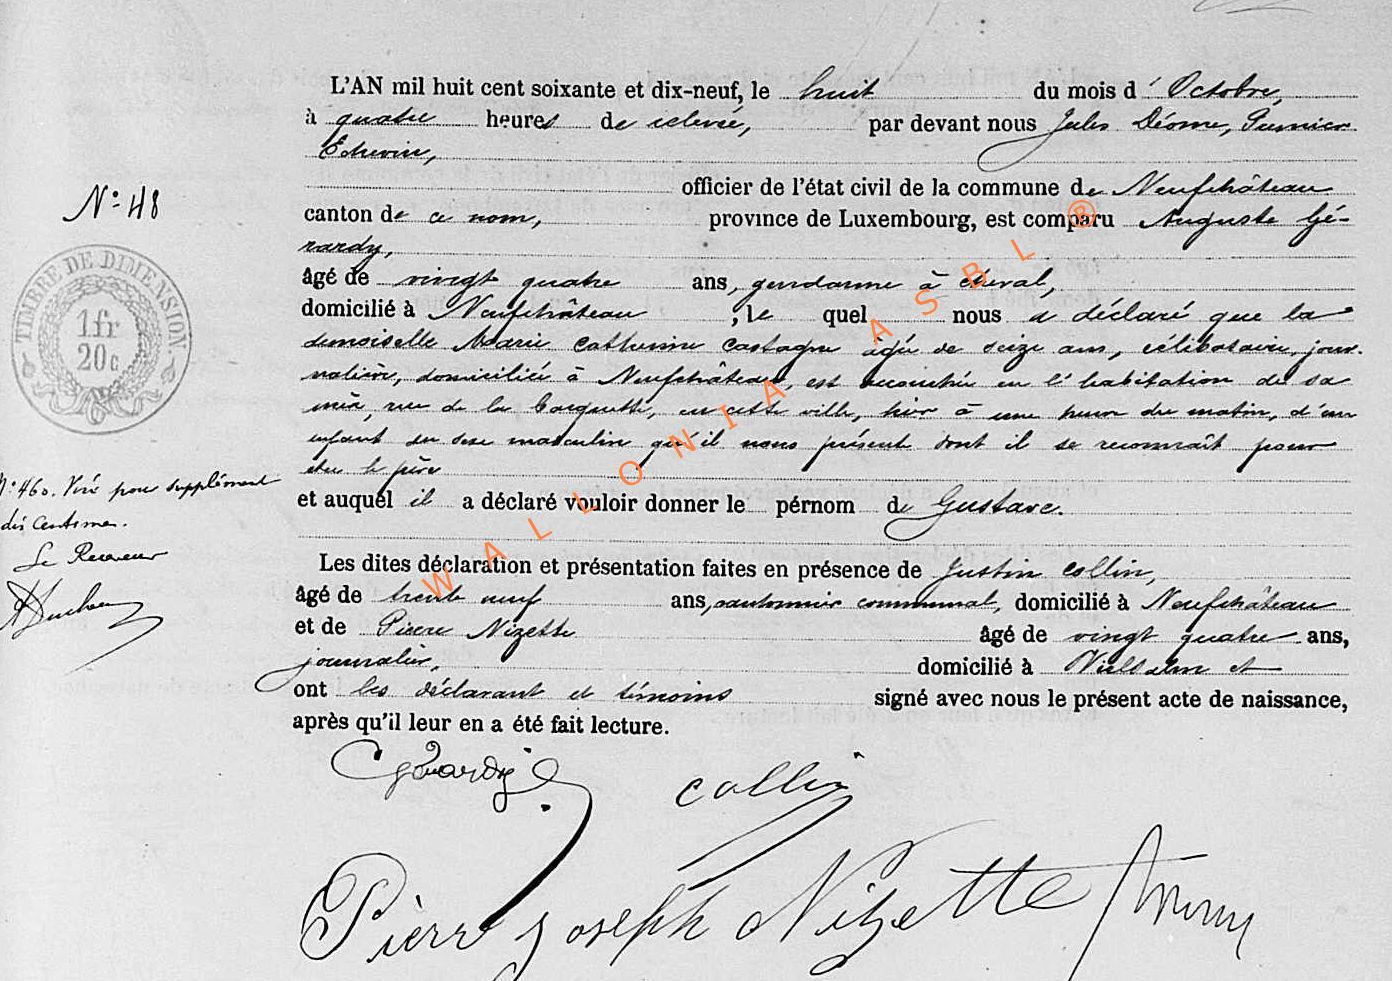 L'AN mil huit cent soixante et dix-neuf, le huit du mois d'Octobre,
à quatre heures de relevée, par devant nous Jules Déome, Premier
Echevin,
officier de l'état civil de la commune de Neufchâteau
N° 48
canton de ce nom, province de Luxembourg, est comparu Auguste Gé-
rardy,
âgé de vingt quatre ans, gendarme à cheval,
domicilié à Neufchâteau, le quel nous a déclaré que la
demoiselle Marie Catherine Castagne âgée de seize ans, célibataire, jour-
nalière, domiciliée à Neufchâteau, est accouchée en l'habitation de sa
mère, rue de la Corquette, en cette ville, hier à une heure du matin, d'un
enfant du sexe masculin qu'il nous présente dont il se reconnaît pour
être le père
et auquel il a déclaré vouloir donner le pérnom de Gustave.
Les dites déclaration et présentation faites en présence de Justin Collin,
âgé de trente neuf ans, cantonnier communal, domicilié à Neufchâteau
et de Pierre Nizette âgé de vingt quatre ans,
journalier, domicilié à Vielsalm et
ont les déclarant et témoins signé avec nous le présent acte de naissance,
après qu'il leur en a été fait lecture.
TIMBRE DE DIMENSION.
1fr
20c
N° 460. Visé pour supplément
dix centimes.
Le Receveur
Gérardy
Collin
Pierre Joseph Nizette
WALLONIA ASBL ®